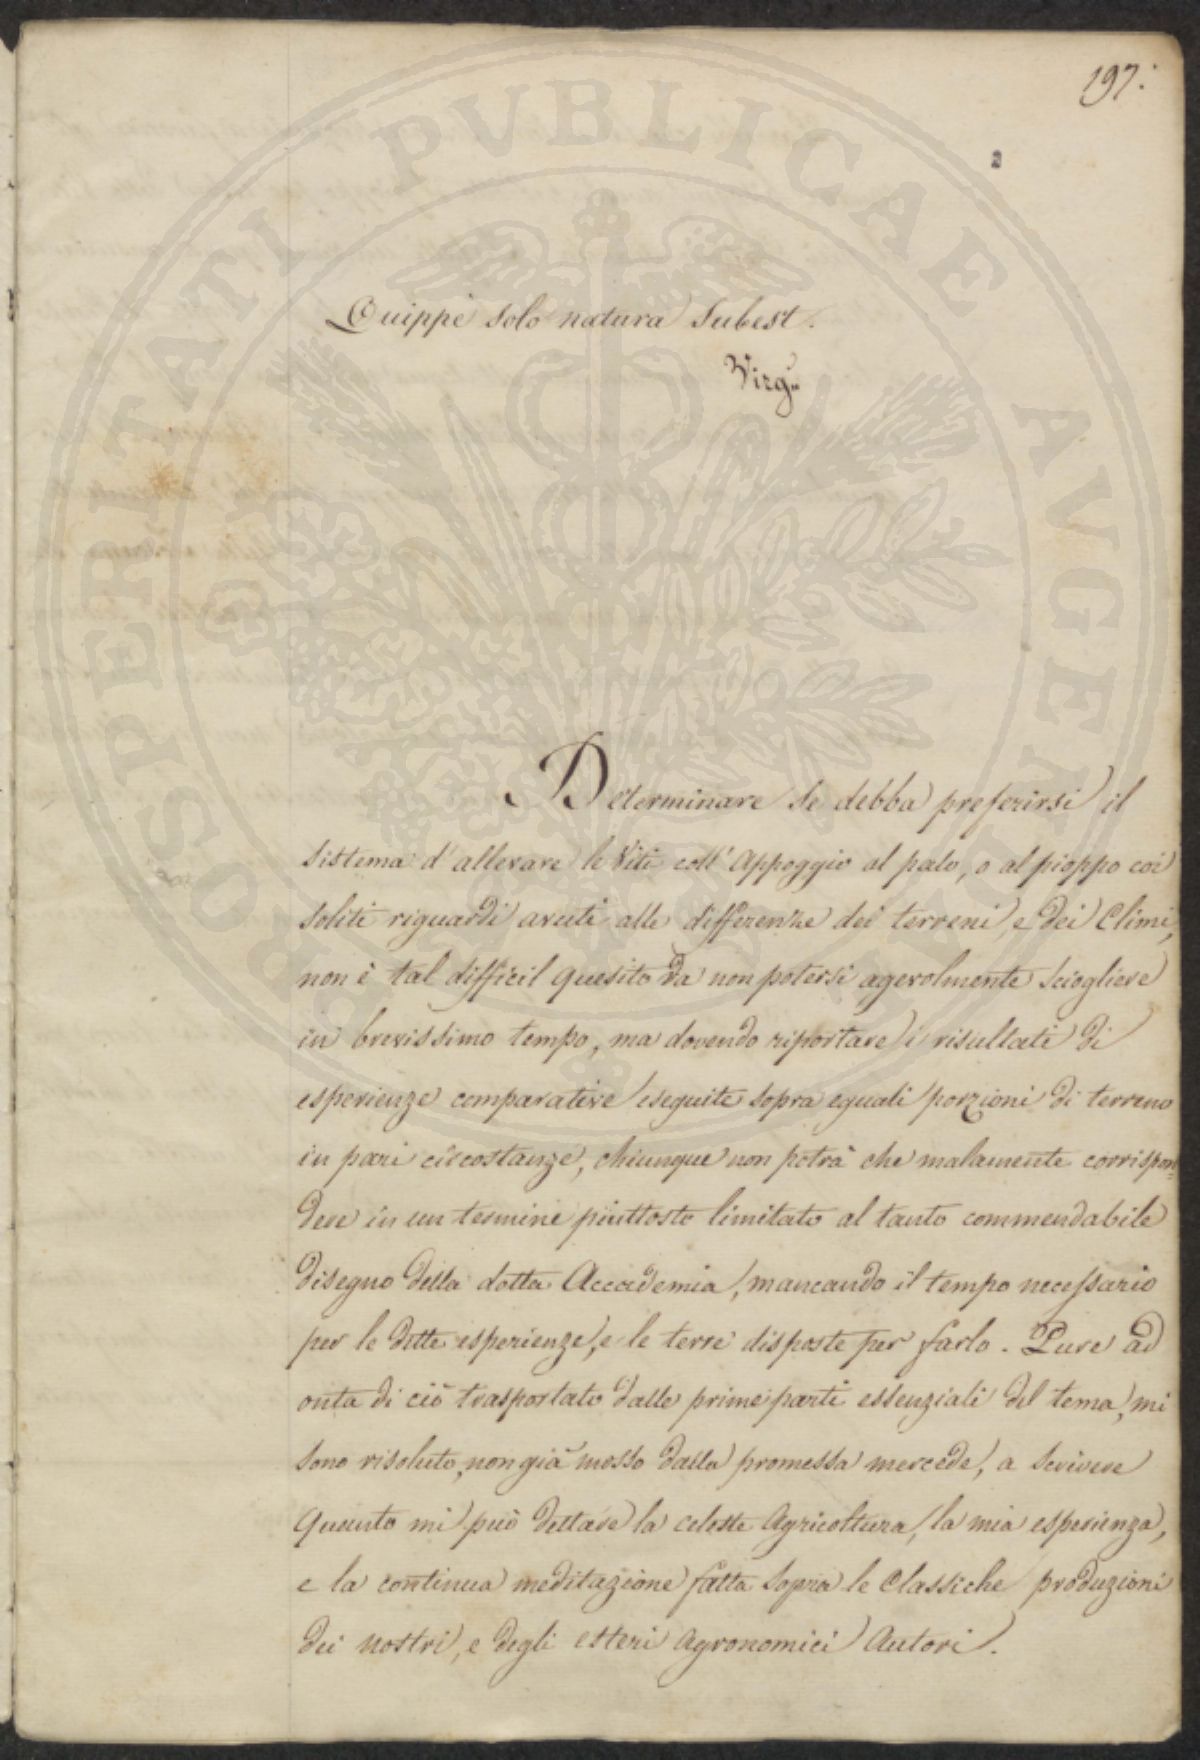 197.
2
Quippe solo natura subest.
Virg.
Determinare se debba preferirsi il
sistema d'allevare le Viti coll'appoggio al palo, o al pioppo coi
soliti riguardi avuti alle differenze dei terreni, e dei Climi,
non è tal difficil quesito da non potersi agevolmente sciogliere
in brevissimo tempo, ma dovendo riportare i risultati di
esperienze comparative eseguite sopra eguali porzioni di terreno
in pari circostanze, chiunque non potrà che malamente corrispon=
dere in un termine piuttosto limitato al tanto commendabile
disegno della dotta Accademia, mancando il tempo necessario
per le dette esperienze, e le terre disposte per farlo. Pure ad
onta di ciò trasportato dalle prime parti essenziali del tema, mi
sono risoluto, non già mosso dalla promessa mercede, a scrivere
quanto mi può dettare la celeste Agricoltura, la mia esperienza,
e la continua meditazione fatta sopra le Classiche produzioni
dei nostri, e degli esteri Agronomici Autori.
PROSPERITATI PVBLICAE AVGENDAE